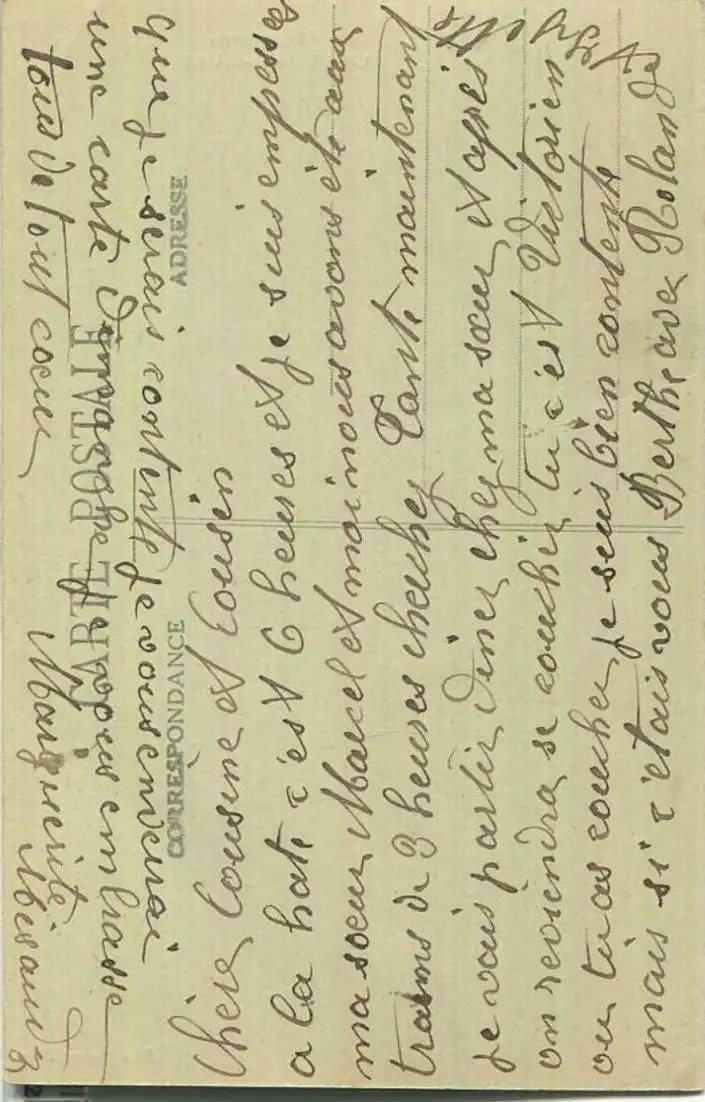 CARTE POSTALE
CORRESPONDANCE
ADRESSE
Chère Cousine et Cousin
a la hate c'est 6 heures et je suis empressé
ma soeur Marcel et moi nous avons été aux
trains de 3 heures cherchez Tante maintenant
je vais partir diner chez ma soeur et après
on reviendra se coucher tu c'est Victorien
ou tu as coucher je suis bien contente
mais si c'etais vous Berthe avec Rolande
que je serais contente je vous enverrai
une carte Dimanche je vous embrasse
tous de tout coeur
Marguerite